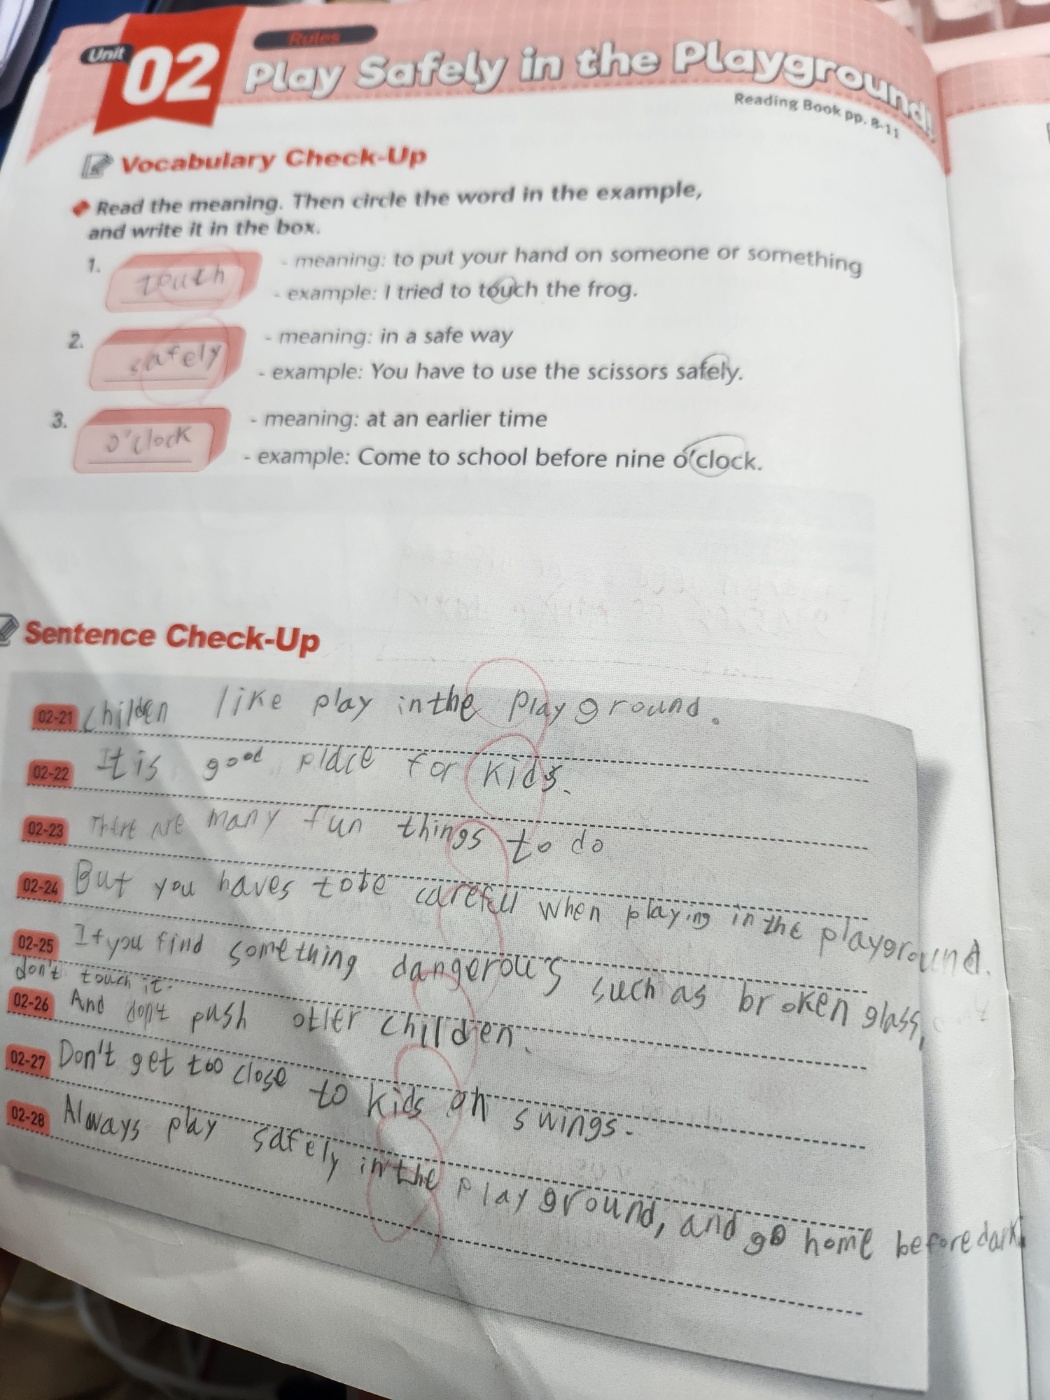 Unit 02
Rules
Play Safely in the Playground!
Reading Book pp. 8-11
Vocabulary Check-Up
Read the meaning. Then circle the word in the example,
and write it in the box.
1. touth - meaning: to put your hand on someone or something
- example: I tried to touch the frog.
2. safely - meaning: in a safe way
- example: You have to use the scissors safely.
3. o'clock - meaning: at an earlier time
- example: Come to school before nine o'clock.
Sentence Check-Up
02-21 Childen like play in the playground.
02-22 It is good place for kids.
02-23 There are many fun things to do
02-24 But you haves to be carefull when playing in the playground.
02-25 If you find something dangerous such as broken glass,
don't touch it.
02-26 And don't push other children.
02-27 Don't get too close to kids on swings.
02-28 Always play safely in the playground, and go home before dark.